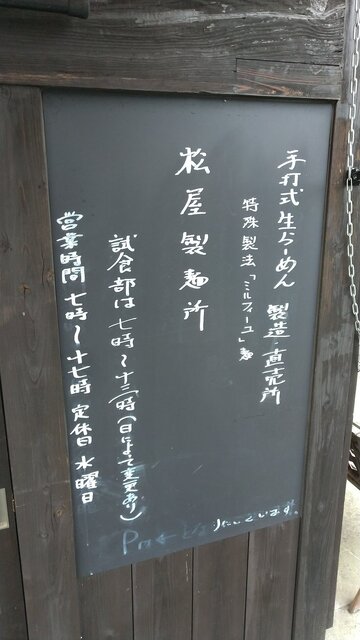 手打式生らーめん 製造・直売所
特殊製法「ミルフィーユ」麺
松屋製麺所
試食部は七時〜十三時(日によって変更あり)
営業時間 七時〜十七時 定休日 水曜日